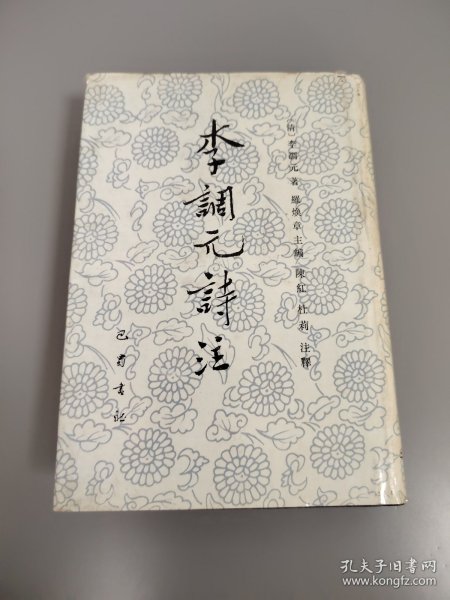 〔清〕李調元著 羅煥章主編 陳紅 杜莉 注釋
李調元詩注
巴蜀書社
孔夫子旧书网
www.kongfz.com